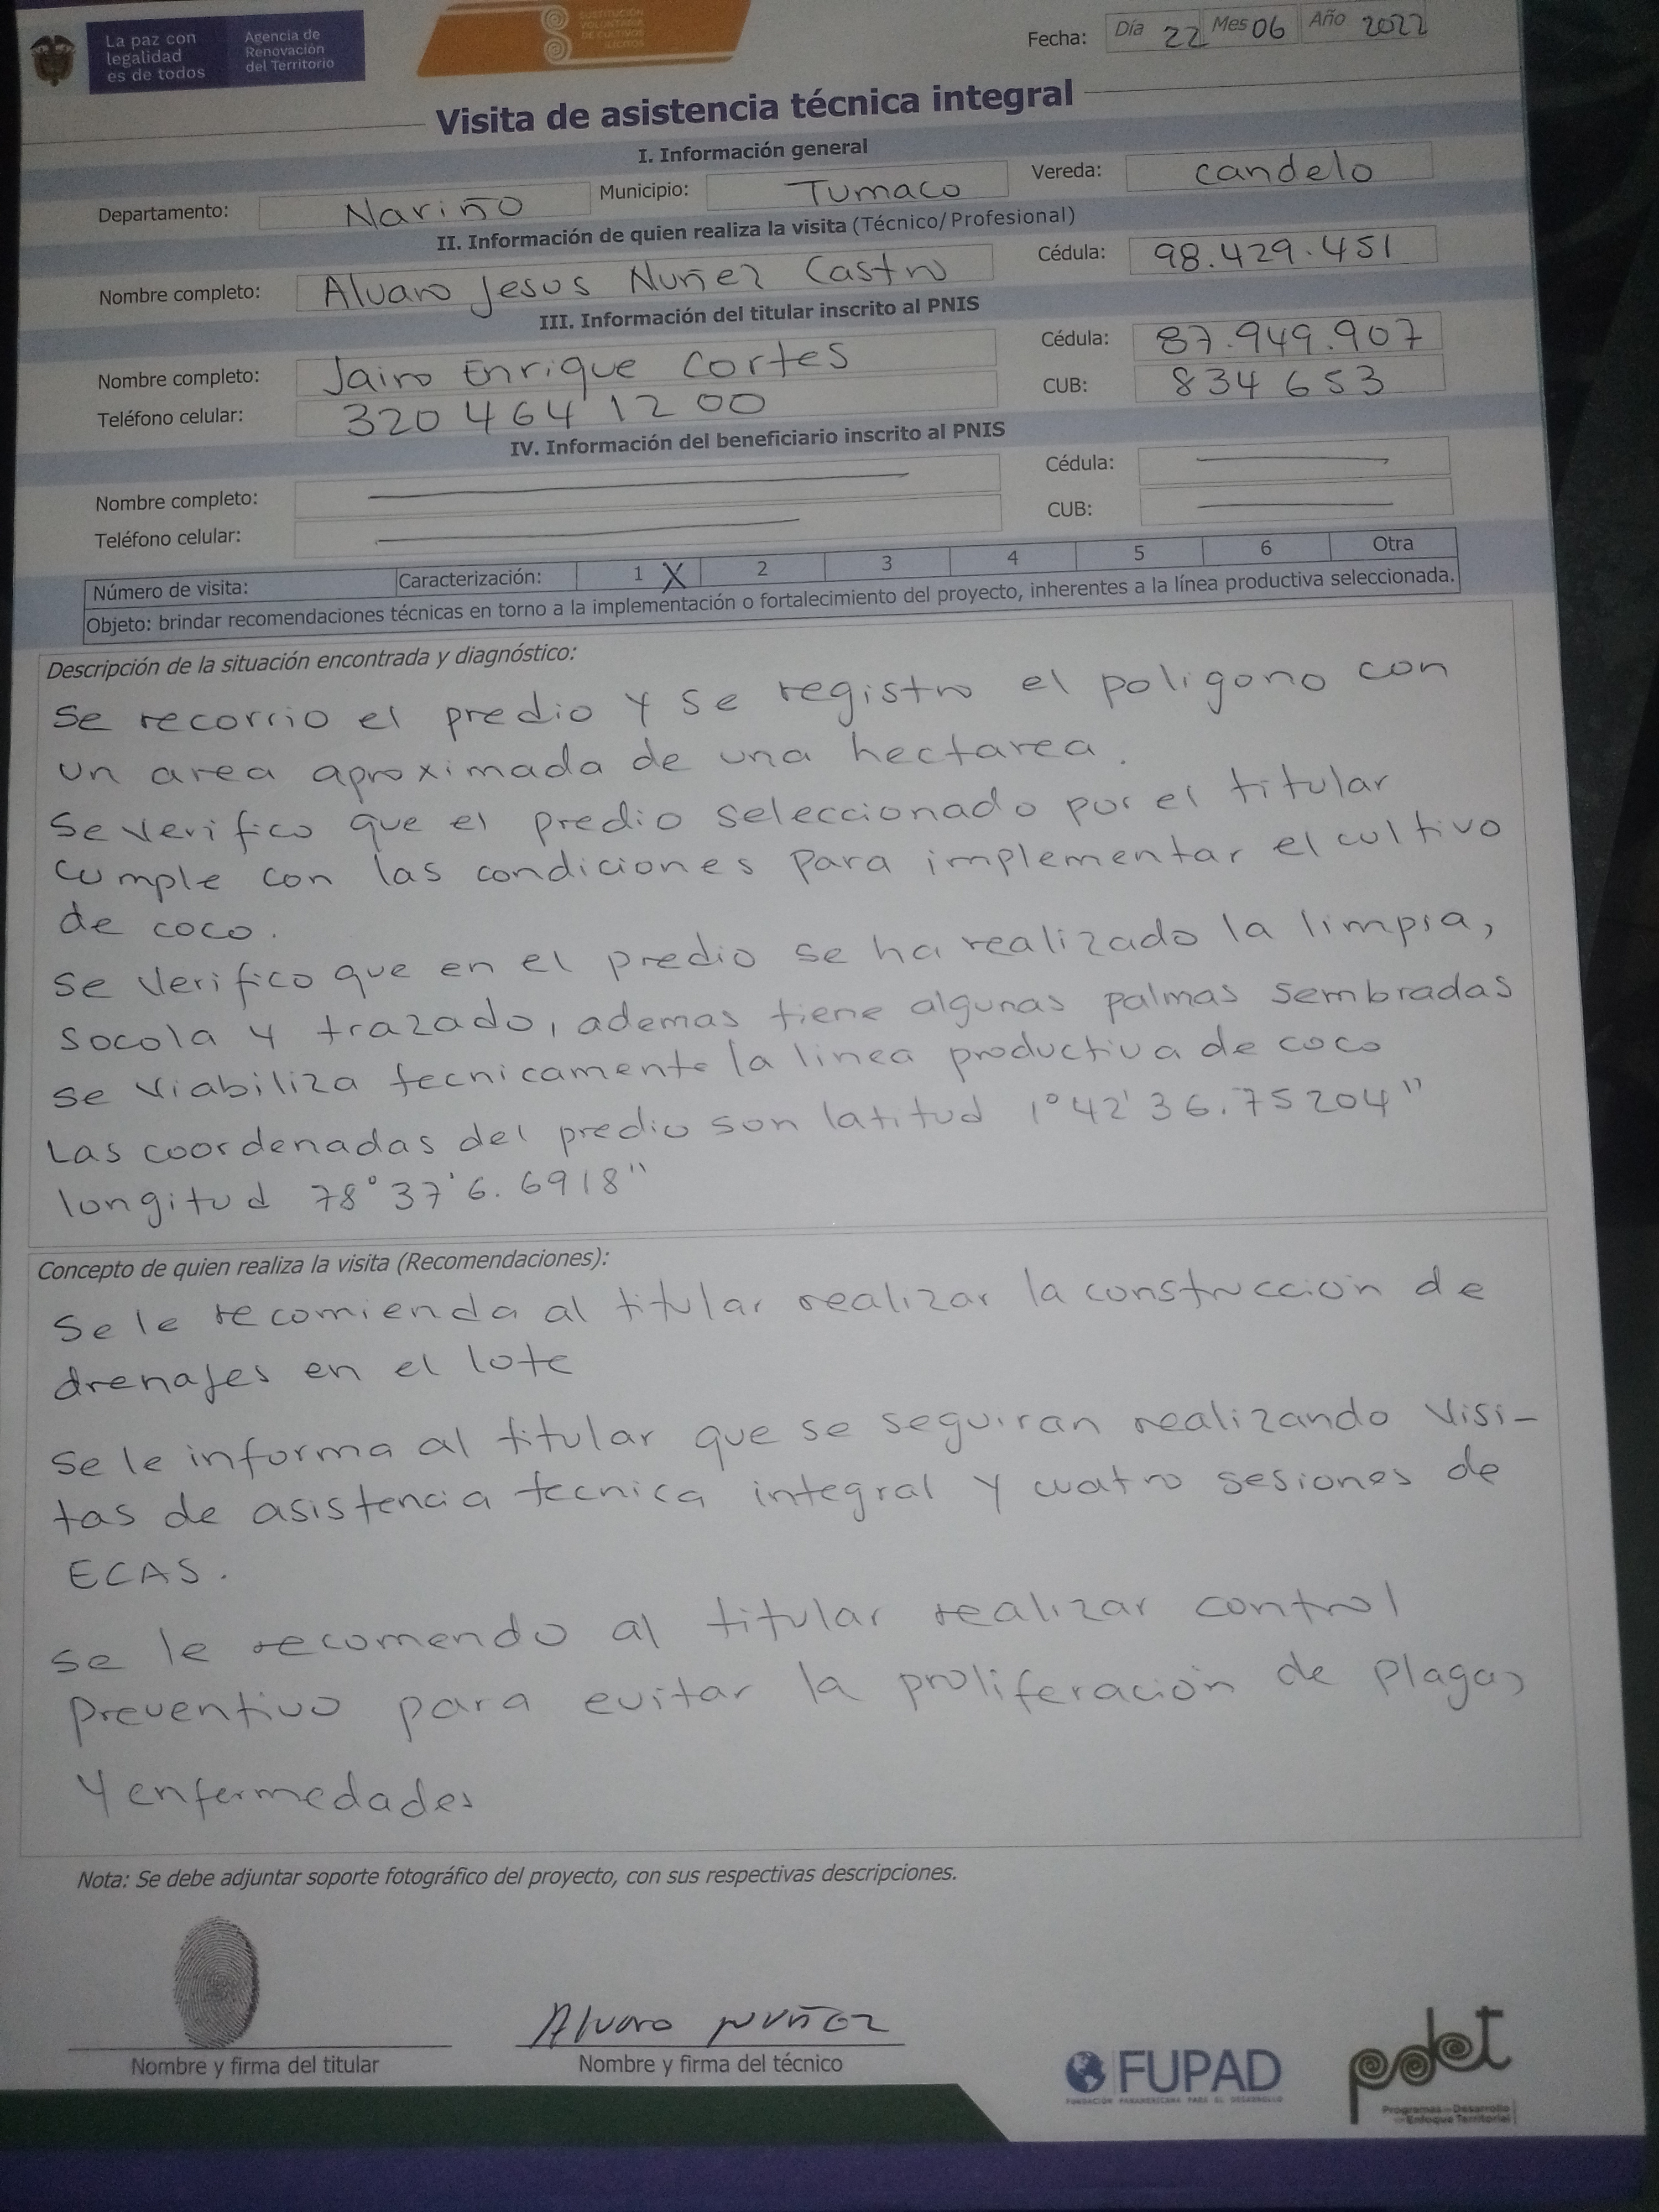 La paz con
legalidad
es de todos
Agencia de
Renovación
del Territorio
SUSTITUCIÓN
VOLUNTARIA
DE CULTIVOS
ILÍCITOS
Fecha: Día 22 Mes 06 Año 2022
Visita de asistencia técnica integral
I. Información general
Departamento: Nariño Municipio: Tumaco Vereda: candelo
II. Información de quien realiza la visita (Técnico/Profesional)
Nombre completo: Alvaro Jesus Nuñez Castro Cédula: 98.429.451
III. Información del titular inscrito al PNIS
Nombre completo: Jairo Enrique Cortes Cédula: 87.949.907
Teléfono celular: 320 464 12 00 CUB: 834653
IV. Información del beneficiario inscrito al PNIS
Nombre completo: Cédula:
Teléfono celular: CUB:
Número de visita: Caracterización: 1 X 2 3 4 5 6 Otra
Objeto: brindar recomendaciones técnicas en torno a la implementación o fortalecimiento del proyecto, inherentes a la línea productiva seleccionada.
Descripción de la situación encontrada y diagnóstico:
Se recorrio el predio y se registro el poligono con
un area aproximada de una hectarea.
Se verifico que el predio seleccionado por el titular
cumple con las condiciones para implementar el cultivo
de coco.
Se verifico que en el predio se ha realizado la limpia,
socola y trazado, ademas tiene algunas palmas sembradas
se viabiliza tecnicamente la linea productiva de coco
Las coordenadas del predio son latitud 1°42'36.75204"
longitud 78°37'6.6918"
Concepto de quien realiza la visita (Recomendaciones):
Se le recomienda al titular realizar la construccion de
drenajes en el lote
Se le informa al titular que se seguiran realizando visi-
tas de asistencia tecnica integral y cuatro sesiones de
ECAS.
Se le recomendo al titular realizar control
Preventivo para evitar la proliferación de plagas
y enfermedades
Nota: Se debe adjuntar soporte fotográfico del proyecto, con sus respectivas descripciones.
Alvaro Nuñez
Nombre y firma del titular Nombre y firma del técnico
FUPAD
FUNDACIÓN PANAMERICANA PARA EL DESARROLLO
pdet
Programas de Desarrollo
con Enfoque Territorial